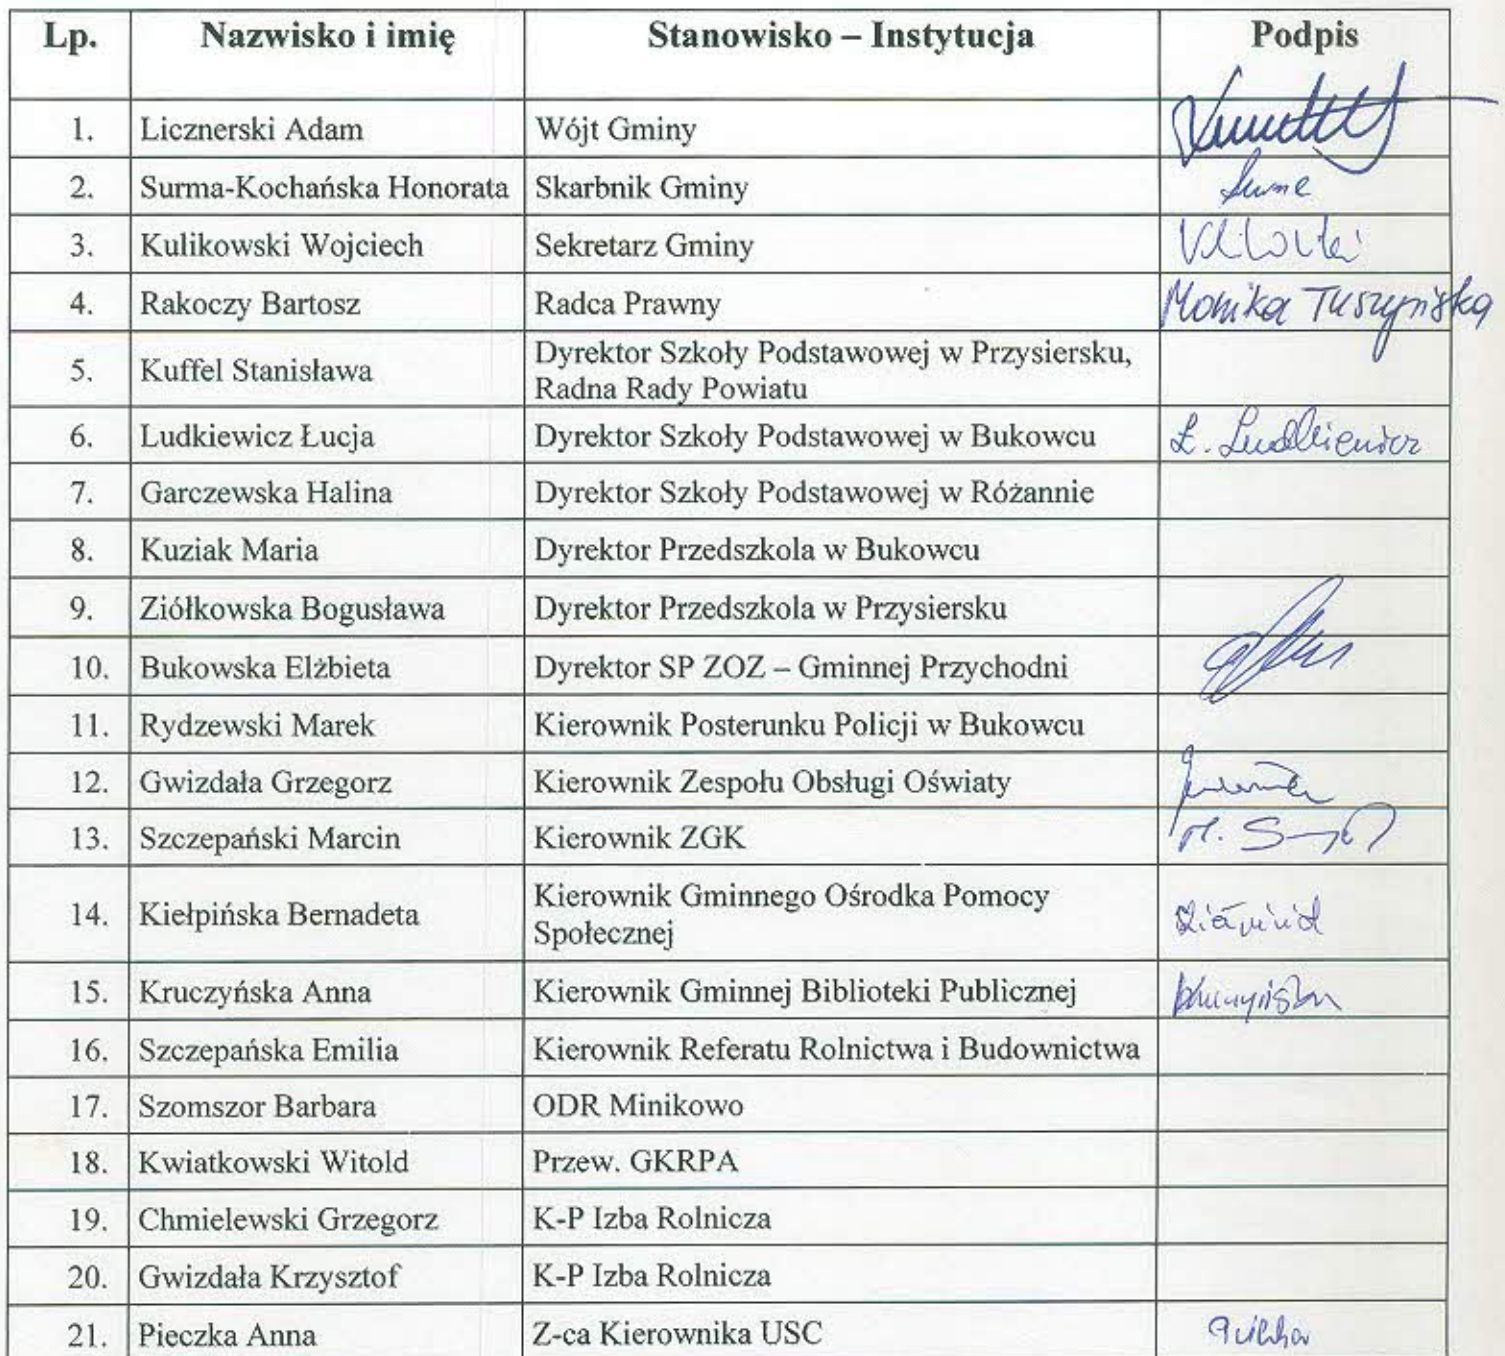 Lp. Nazwisko i imię Stanowisko – Instytucja Podpis
1. Licznerski Adam Wójt Gminy
2. Surma-Kochańska Honorata Skarbnik Gminy
3. Kulikowski Wojciech Sekretarz Gminy
4. Rakoczy Bartosz Radca Prawny Monika Tuszyńska
5. Kuffel Stanisława Dyrektor Szkoły Podstawowej w Przysiersku,
Radna Rady Powiatu
6. Ludkiewicz Łucja Dyrektor Szkoły Podstawowej w Bukowcu Ł. Ludkiewicz
7. Garczewska Halina Dyrektor Szkoły Podstawowej w Różannie
8. Kuziak Maria Dyrektor Przedszkola w Bukowcu
9. Ziółkowska Bogusława Dyrektor Przedszkola w Przysiersku
10. Bukowska Elżbieta Dyrektor SP ZOZ – Gminnej Przychodni
11. Rydzewski Marek Kierownik Posterunku Policji w Bukowcu
12. Gwizdała Grzegorz Kierownik Zespołu Obsługi Oświaty
13. Szczepański Marcin Kierownik ZGK
14. Kiełpińska Bernadeta Kierownik Gminnego Ośrodka Pomocy
Społecznej
15. Kruczyńska Anna Kierownik Gminnej Biblioteki Publicznej
16. Szczepańska Emilia Kierownik Referatu Rolnictwa i Budownictwa
17. Szomszor Barbara ODR Minikowo
18. Kwiatkowski Witold Przew. GKRPA
19. Chmielewski Grzegorz K-P Izba Rolnicza
20. Gwizdała Krzysztof K-P Izba Rolnicza
21. Pieczka Anna Z-ca Kierownika USC